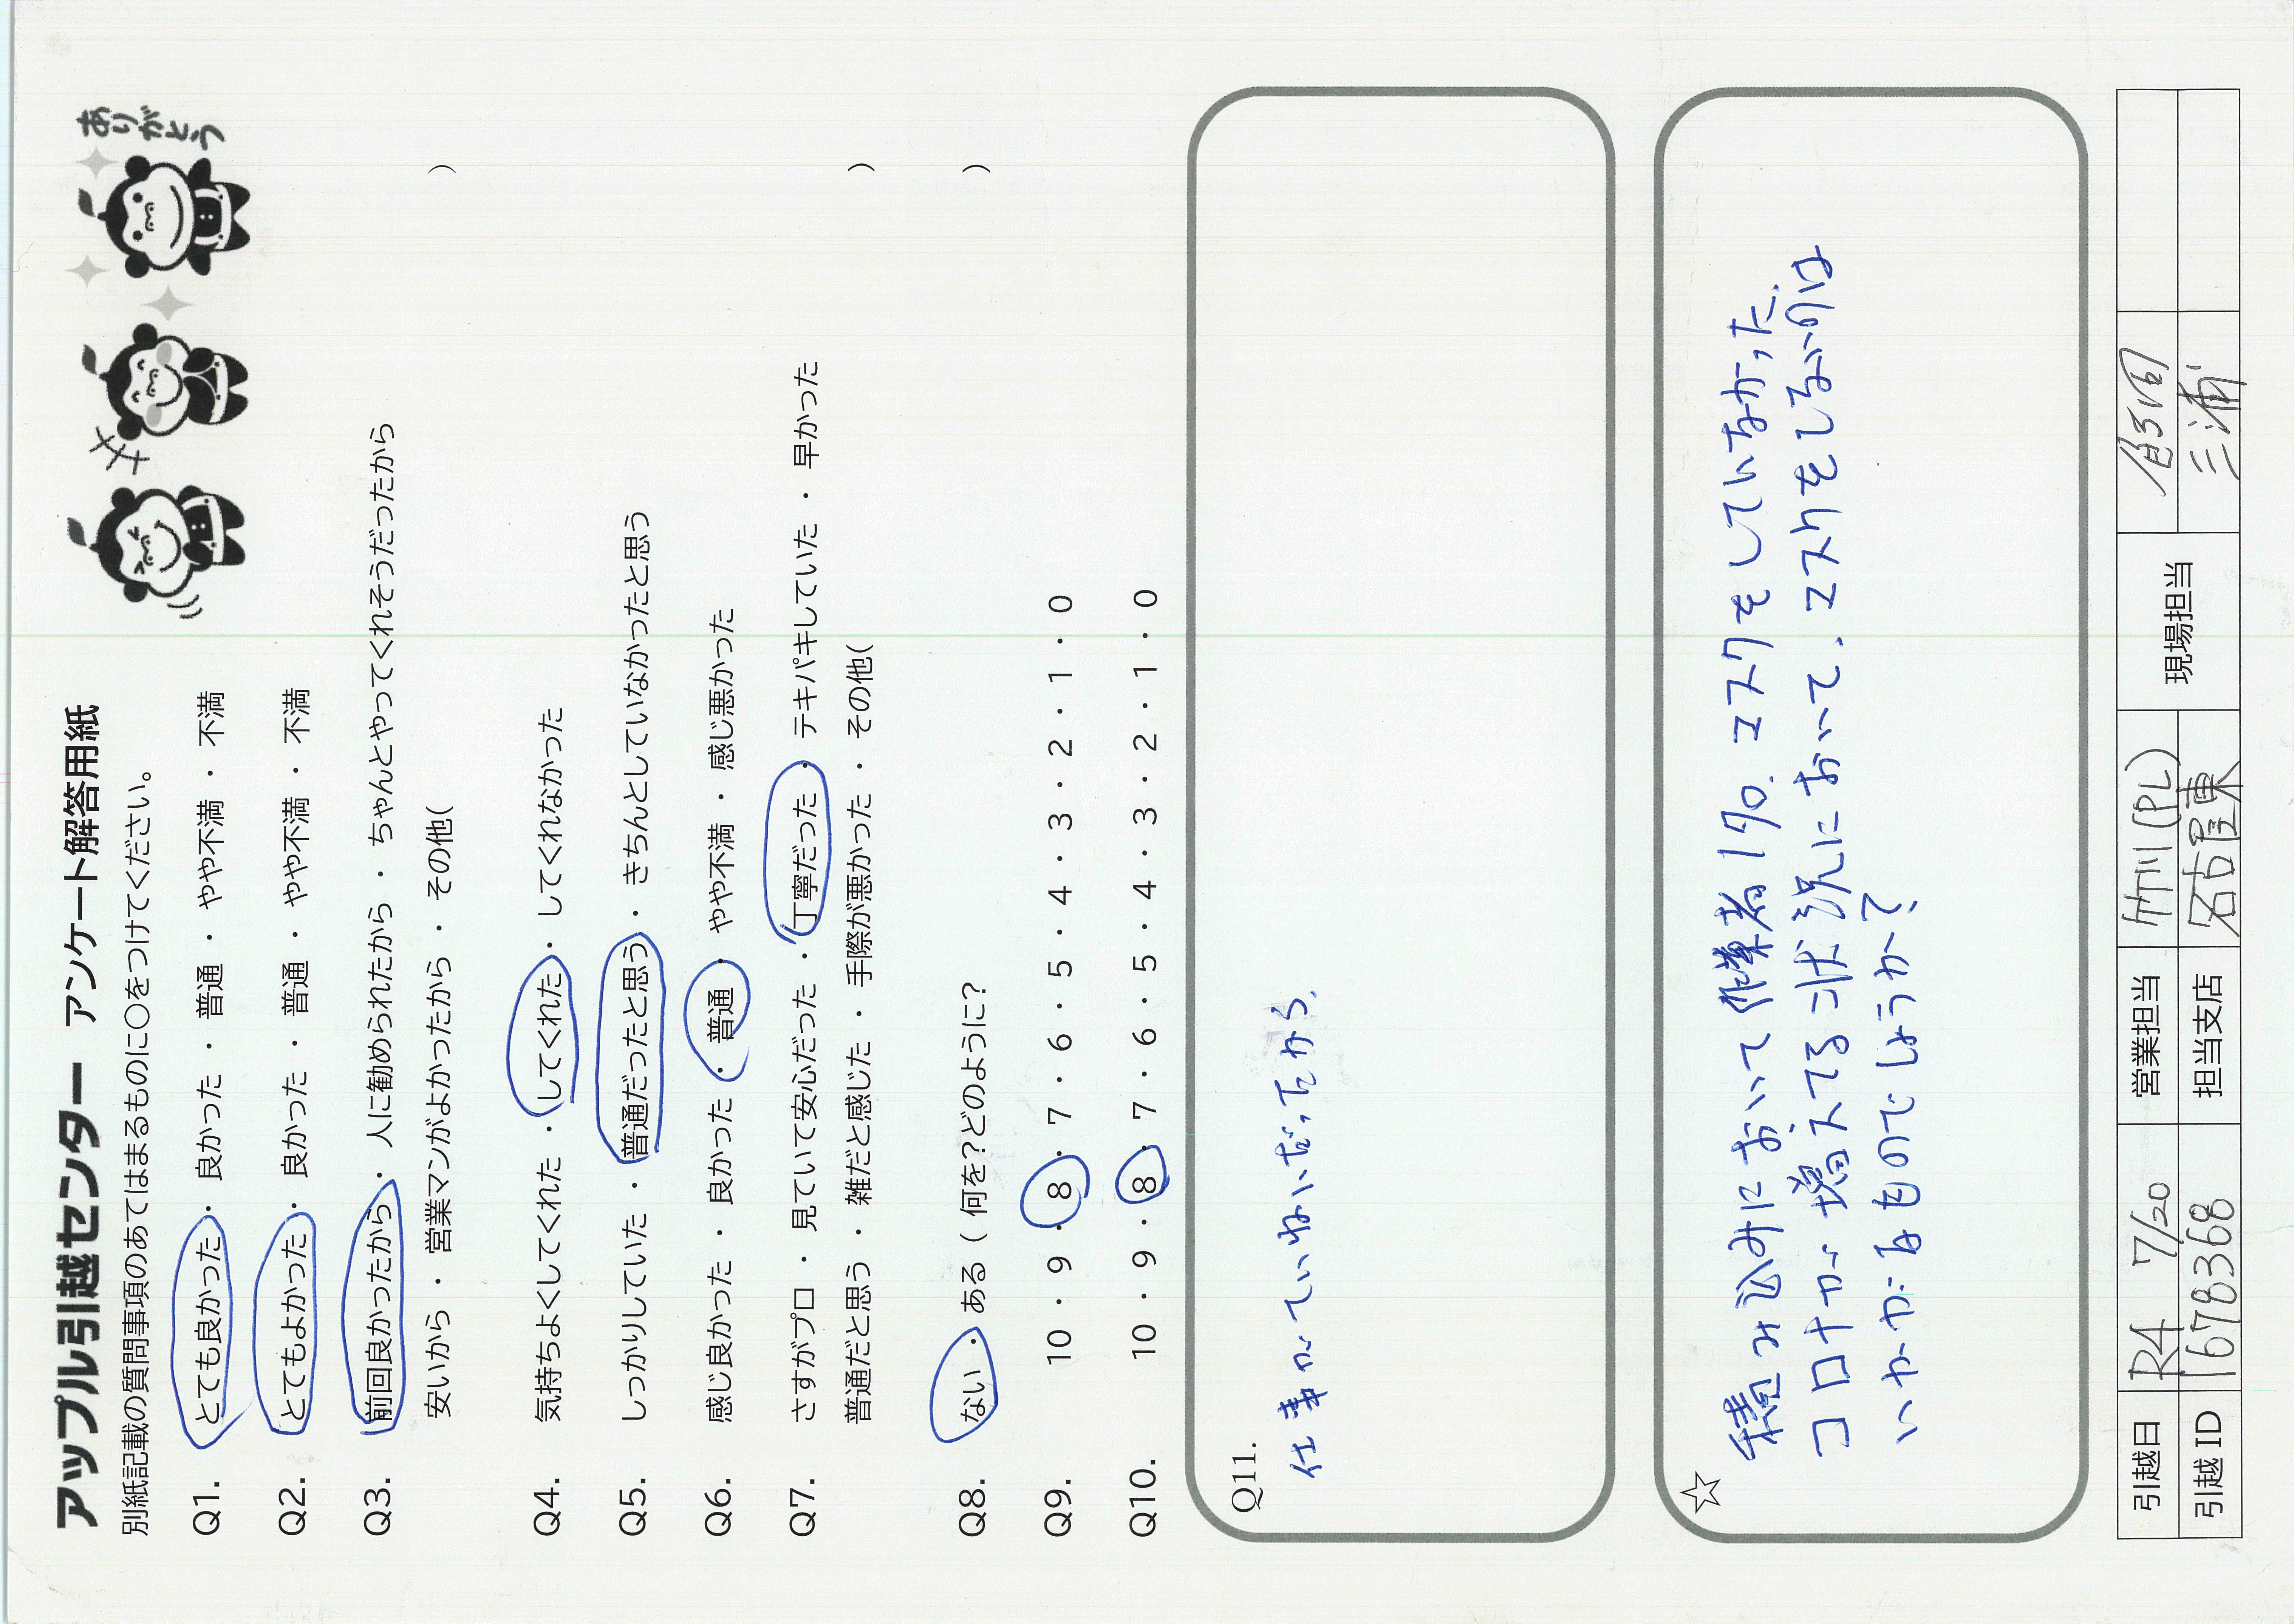 アップル引越センター アンケート解答用紙
ありがとう
別紙記載の質問事項のあてはまるものに〇をつけてください。
Q1. とても良かった ・ 良かった ・ 普通 ・ やや不満 ・ 不満
Q2. とてもよかった ・ 良かった ・ 普通 ・ やや不満 ・ 不満
Q3. 前回良かったから ・ 人に勧められたから ・ ちゃんとやってくれそうだったから
安いから ・ 営業マンがよかったから ・ その他( )
Q4. 気持ちよくしてくれた ・ してくれた ・ してくれなかった
Q5. しっかりしていた ・ 普通だったと思う ・ きちんとしていなかったと思う
Q6. 感じ良かった ・ 良かった ・ 普通 ・ やや不満 ・ 感じ悪かった
Q7. さすがプロ ・ 見ていて安心だった ・ 丁寧だった ・ テキパキしていた ・ 早かった
普通だと思う ・ 雑だと感じた ・ 手際が悪かった ・ その他( )
Q8. ない ・ ある ( 何を?どのように? )
Q9. 10 ・ 9 ・ 8 ・ 7 ・ 6 ・ 5 ・ 4 ・ 3 ・ 2 ・ 1 ・ 0
Q10. 10 ・ 9 ・ 8 ・ 7 ・ 6 ・ 5 ・ 4 ・ 3 ・ 2 ・ 1 ・ 0
Q11.
仕事がていねいだったから.
☆
積み込みにおいて作業者1名. マスクをしていなかった.
コロナが増えてる状況において. マスクをしないのは
いかがなものでしょうか?
引越日 R4 7/20 営業担当 竹川(PL) 現場担当
引越ID 1678368 担当支店 名古屋東 三浦